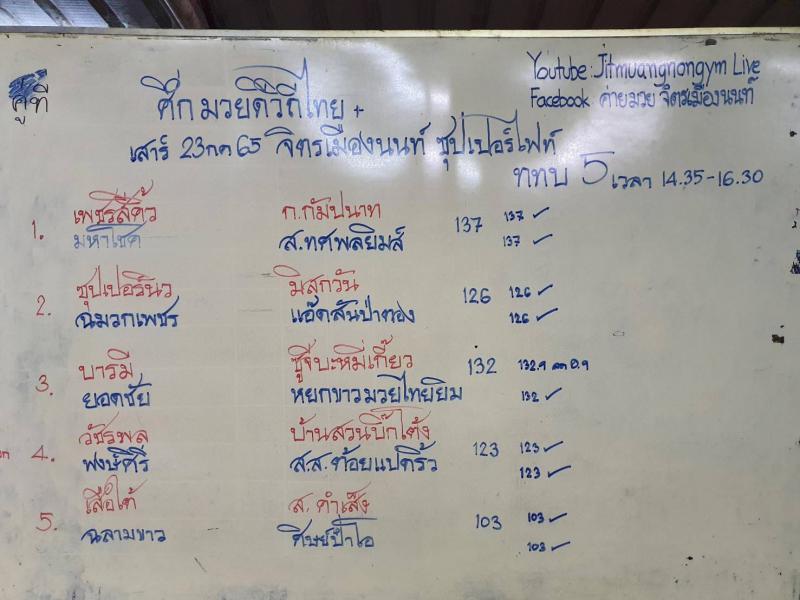 คู่ที่
Youtube: Jitmuangnongym Live
Facebook ค่ายมวย จิตรเมืองนนท์
ศึกมวยดีวิถีไทย+
เสาร์ 23 กค 65 จิตรเมืองนนท์ ซุปเปอร์ไฟท์
ททบ 5 เวลา 14.35-16.30
1. เพชรสี่คิ้ว ก.กัมปนาท 137 137 ✓
มหาโชค ส.ทศพลยิมส์ 137 ✓
2. ซุปเปอร์นิว มิสุกวัน 126 126 ✓
ฉมวกเพชร แอ๊ดสันป่าตอง 126 ✓
3. บารมี ซูจีบะหมี่เกี๊ยว 132 132.9 ลด 0.9
ยอดชัย หยกขาวมวยไทยยิม 132 ✓
4. วัชรพล บ้านสวนบิ๊กโต้ง 123 123 ✓
พงษ์ศิริ ส.ส.ต้อยแปดริ้ว 123 ✓
5. เสือใต้ ส. คำเส็ง 103 103 ✓
ฉลามขาว ศิษย์ป๋าโอ 103 ✓